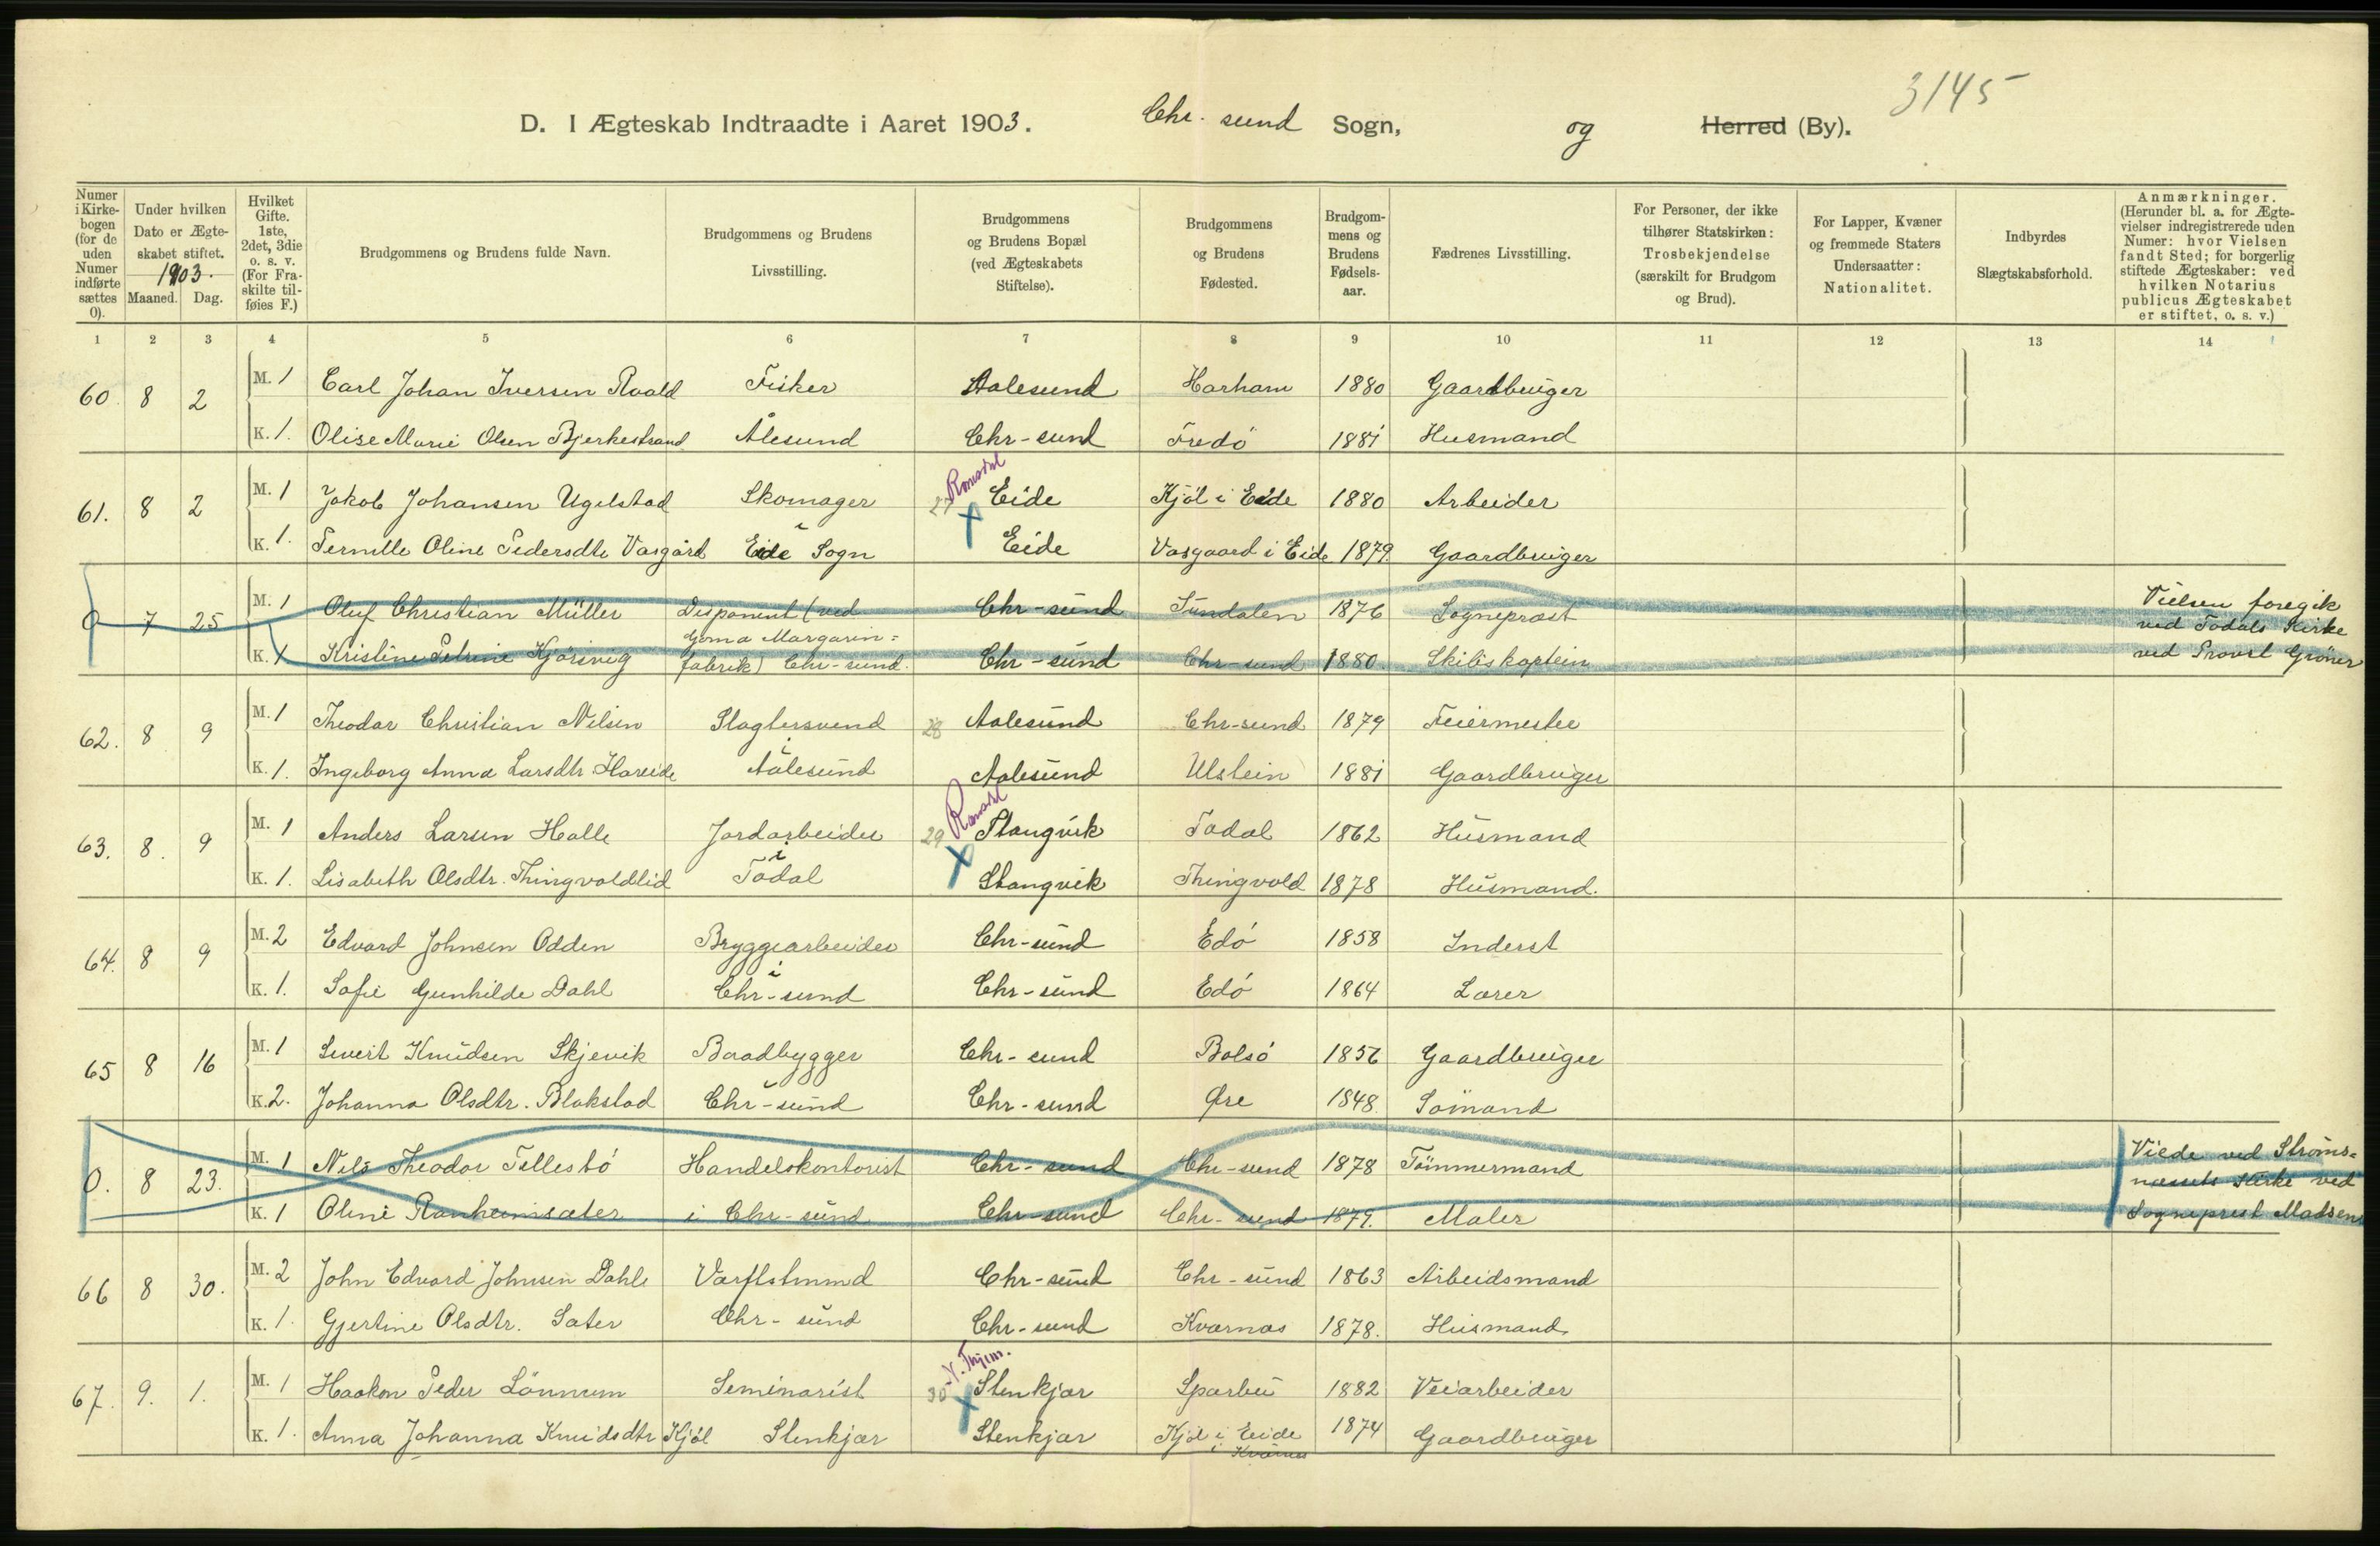 3145
D. I Ægteskab Indtraadte i Aaret 1903. Chr. sund Sogn, og Herred (By).
Numer i Kirkebogen (for de uden Numer indførte sættes 0).
Under hvilken Dato er Ægteskabet stiftet. 1903. Maaned. Dag.
Hvilket Gifte. 1ste, 2det, 3die o. s. v. (For Fraskilte tilføies F.)
Brudgommens og Brudens fulde Navn.
Brudgommens og Brudens Livsstilling.
Brudgommens og Brudens Bopæl (ved Ægteskabets Stiftelse).
Brudgommens og Brudens Fødested.
Brudgommens og Brudens Fødselsaar.
Fædrenes Livsstilling.
For Personer, der ikke tilhører Statskirken: Trosbekjendelse (særskilt for Brudgom og Brud).
For Lapper, Kvæner og fremmede Staters Undersaatter: Nationalitet.
Indbyrdes Slægtskabsforhold.
Anmærkninger. (Herunder bl. a. for Ægtevielser indregistrerede uden Numer: hvor Vielsen fandt Sted; for borgerlig stiftede Ægteskaber: ved hvilken Notarius publicus Ægteskabet er stiftet, o. s. v.)
1 2 3 4 5 6 7 8 9 10 11 12 13 14
60. 8 2 M. 1 Carl Johan Iversen Roald Fisker Aalesund Harham 1880 Gaardbruger
K. 1. Olise Marie Olsen Bjerkestrand Ålesund Chr-sund Fredö 1881 Husmand
61. 8 2 M. 1 Jakob Johansen Ugelstad Skomager 27 Romsdal Eide Kjöl i Eide 1880 Arbeider
K. 1. Pernille Oline Pedersdtr Vasgård i Eide Sogn Eide Vasgaard i Eide 1879. Gaardbruger
0 7 25 M. 1 Oluf Christian Müller Disponent (ved Chr-sund Sundalen 1876 Sognepræst Vielsen foregik ved Todals Kirke
K. 1 Kristine Petrine Kjörsvig Goma Margarin= fabrik) Chr-sund. Chr-sund Chr-sund 1880. Skibskaptein ved Provst Gröner
62. 8 9 M. 1 Theodor Christian Nilsen Slagtersvend 28 Aalesund Chr-sund 1879 Feiermester
K. 1. Ingeborg Anna Larsdtr Hareide i Aalesund Aalesund Ulstein 1881 Gaardbruger
63. 8. 9 M. 1 Anders Larsen Halle Jordarbeider 29 Romsdal Stangvik Todal 1862 Husmand
K. 1. Lisabeth Olsdtr. Thingvoldlid i Todal Stangvik Thingvold 1878 Husmand.
64. 8 9 M. 2 Edvard Johnsen Odden Bryggearbeider Chr-sund Edö 1858 Inderst
K. 1. Sofie Gunhilde Dahl i Chr-sund Chr-sund Edö 1864 Lærer
65 8 16 M. 1 Sivert Knudsen Skjevik Baadbygger Chr-sund Bolsö 1856 Gaardbruger
K. 2. Johanna Olsdtr. Blakstad Chr-sund Chr-sund Øre 1848. Sömand
0. 8 23. M. 1 Nils Theodor Tellestö Handelskontorist Chr-sund Chr-sund 1878 Tömmermand Viede ved Ströms= næssets Kirke ved
K. 1 Oline Ranheimsæter i Chr-sund Chr-sund Chr-sund 1879. Maler Sogneprest Madsen
66 8 30. M. 2 John Edvard Johnsen Dahle Chr-sund Chr-sund 1863 Arbeidsmand
K. 1. Gjertine Olsdtr. Sæter Chr-sund Chr-sund Kværnæs 1878. Husmand.
67. 9. 1. M. 1 Haakon Peder Lönnum Seminarist 30 N. Thjem. Stenkjær Sparbu 1882 Veiarbeider
K. 1. Anna Johanna Knudsdtr Kjöl Stenkjær Stenkjær Kjöl i Eide i Kværnes 1874 Gaardbruger